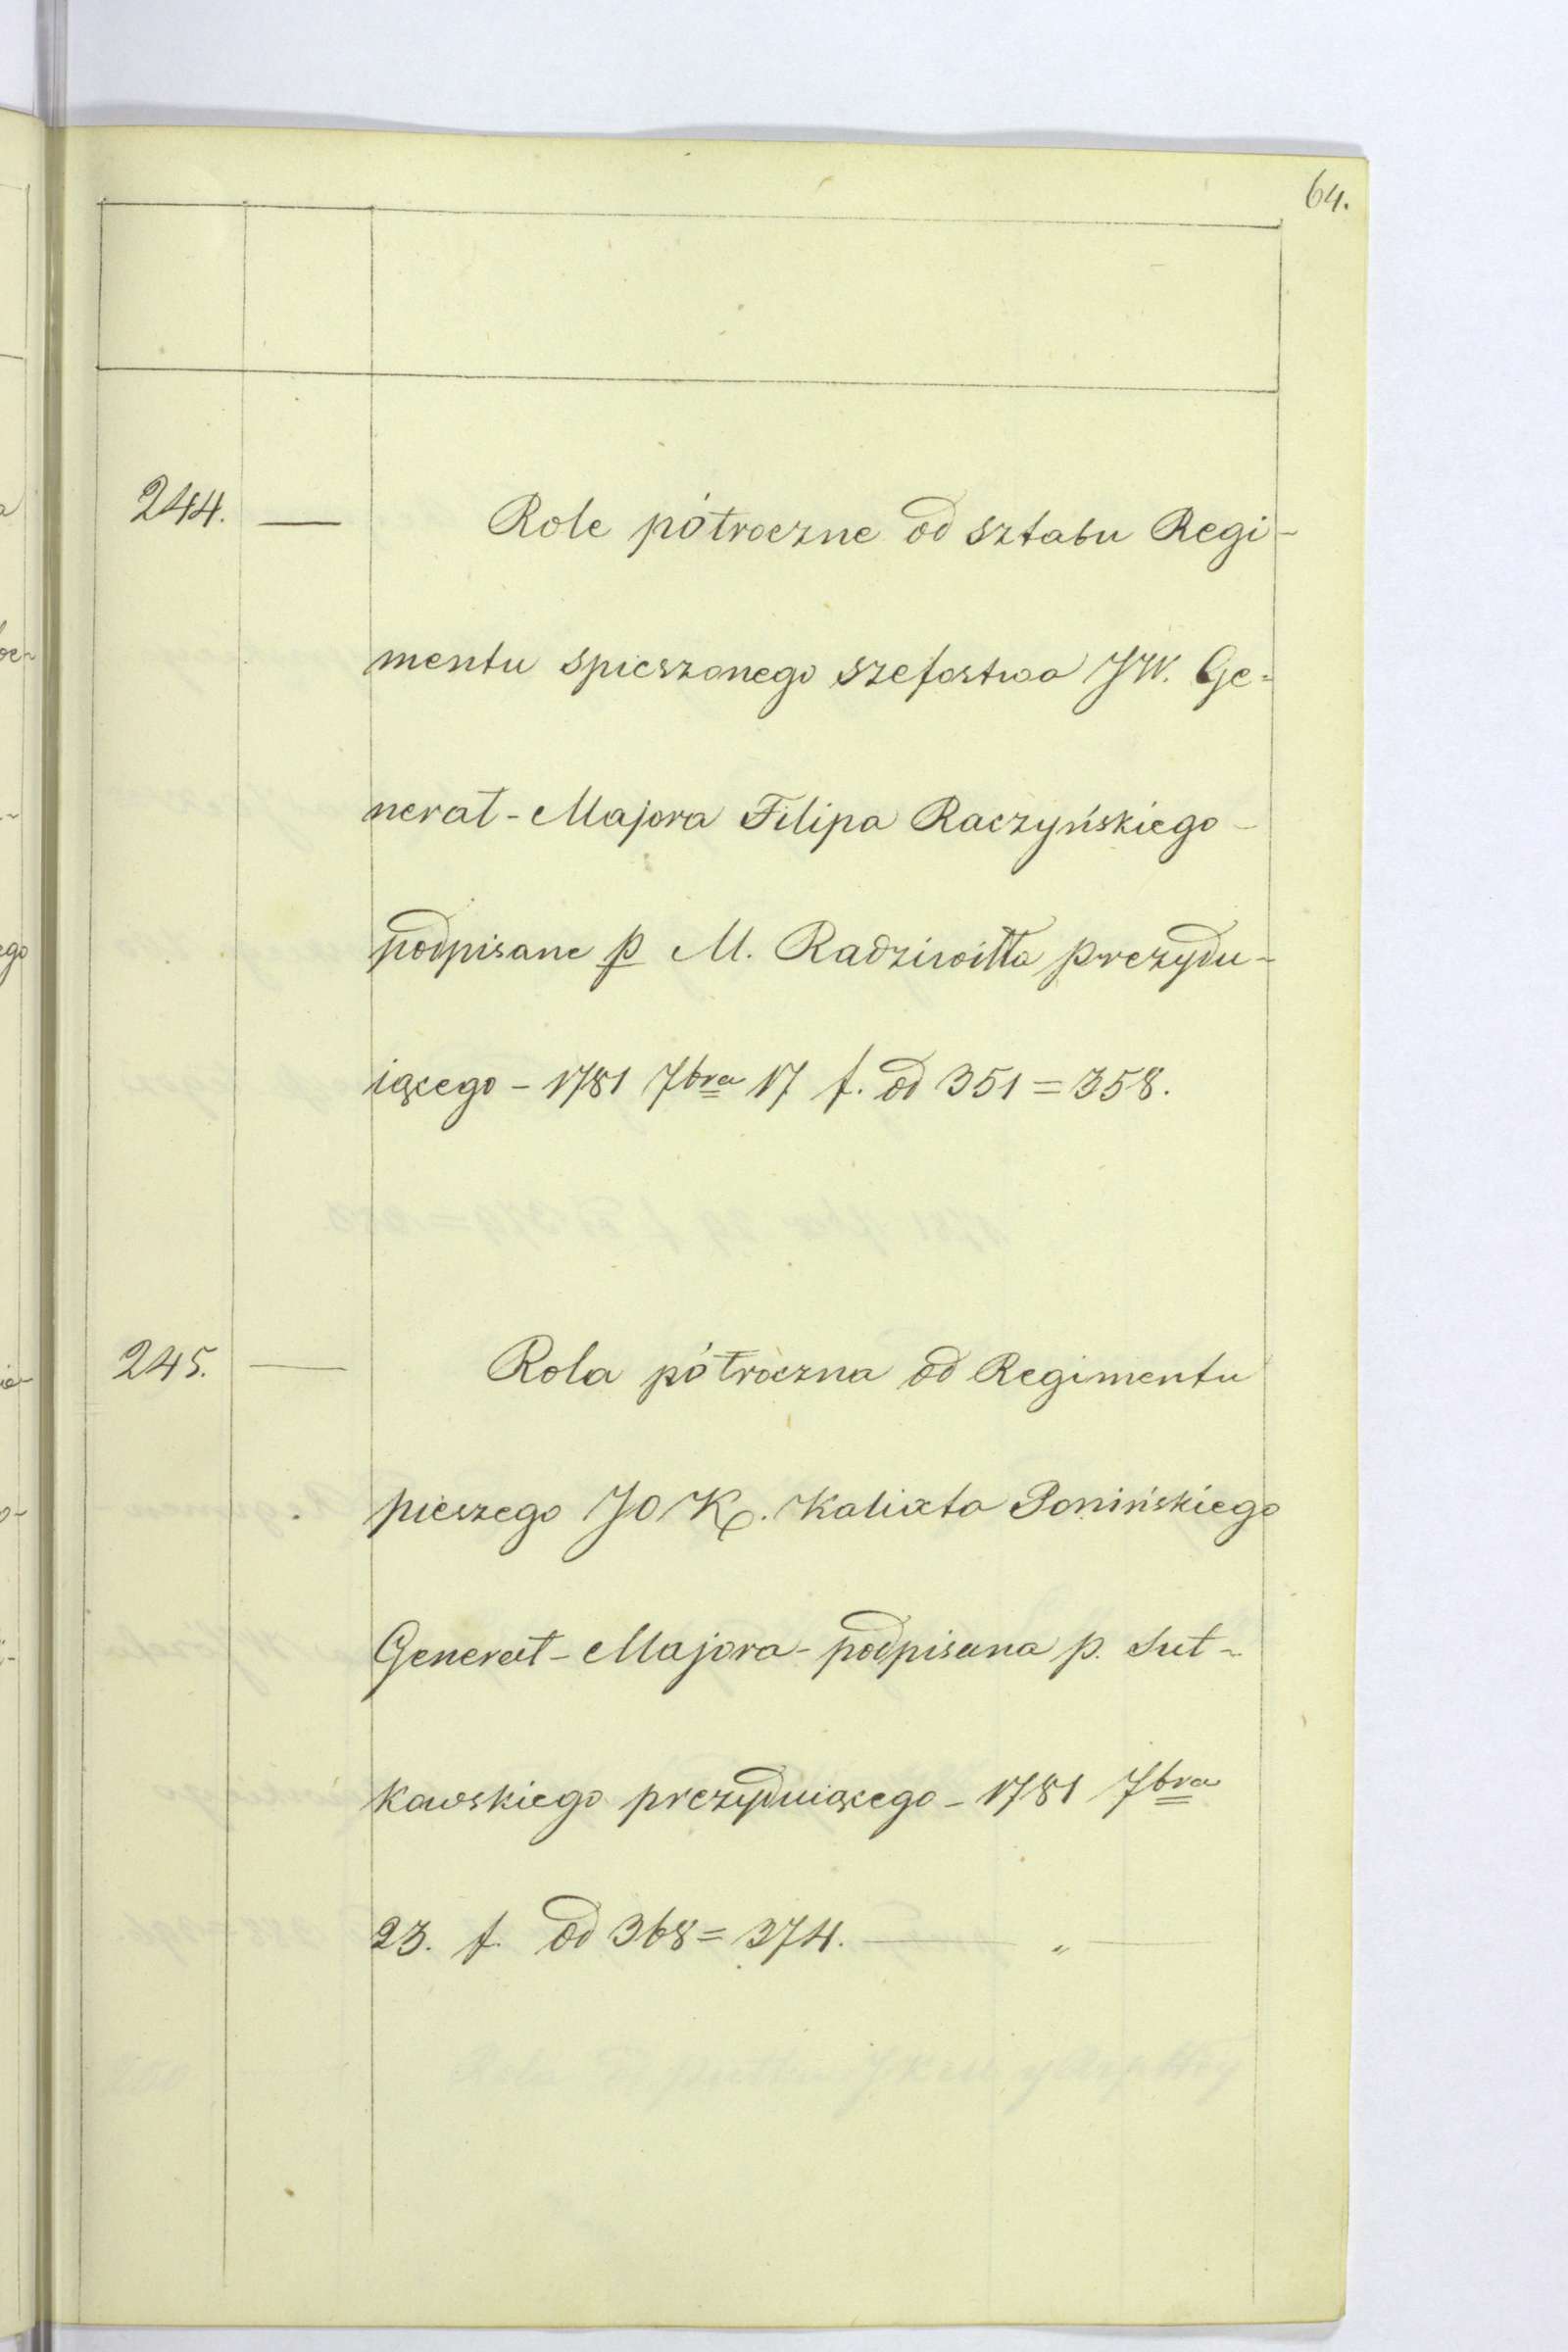 64.
244. — Role półroczne od sztabu Regi-
mentu spieszonego szefostwa JW. Ge-
nerał-Majora Filipa Raczyńskiego -
podpisane p M. Radziwiłła prezydu-
iącego - 1781 7bra 17 f. od 351 = 358.
245. — Rola półroczna od Regimentu
pieszego JO K. Kalixta Ponińskiego
Generał-Majora - podpisana p. Suł-
kowskiego prezyduiącego - 1781 7bra
23. f. od 368 = 374. — „ —